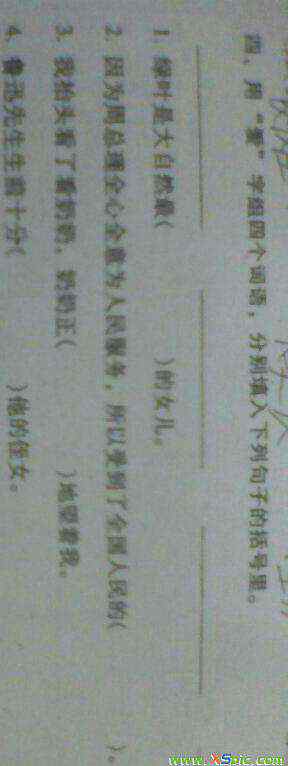 四、用“爱”字组四个词语,分别填入下列句子的括号里。
1. 绿叶是大自然最(          )的女儿。
2. 因为周总理全心全意为人民服务,所以受到了全国人民的(          )。
3. 我抬头看了看奶奶,奶奶正(          )地望着我。
4. 鲁迅先生生前十分(          )他的侄女。
www.XSpic.com